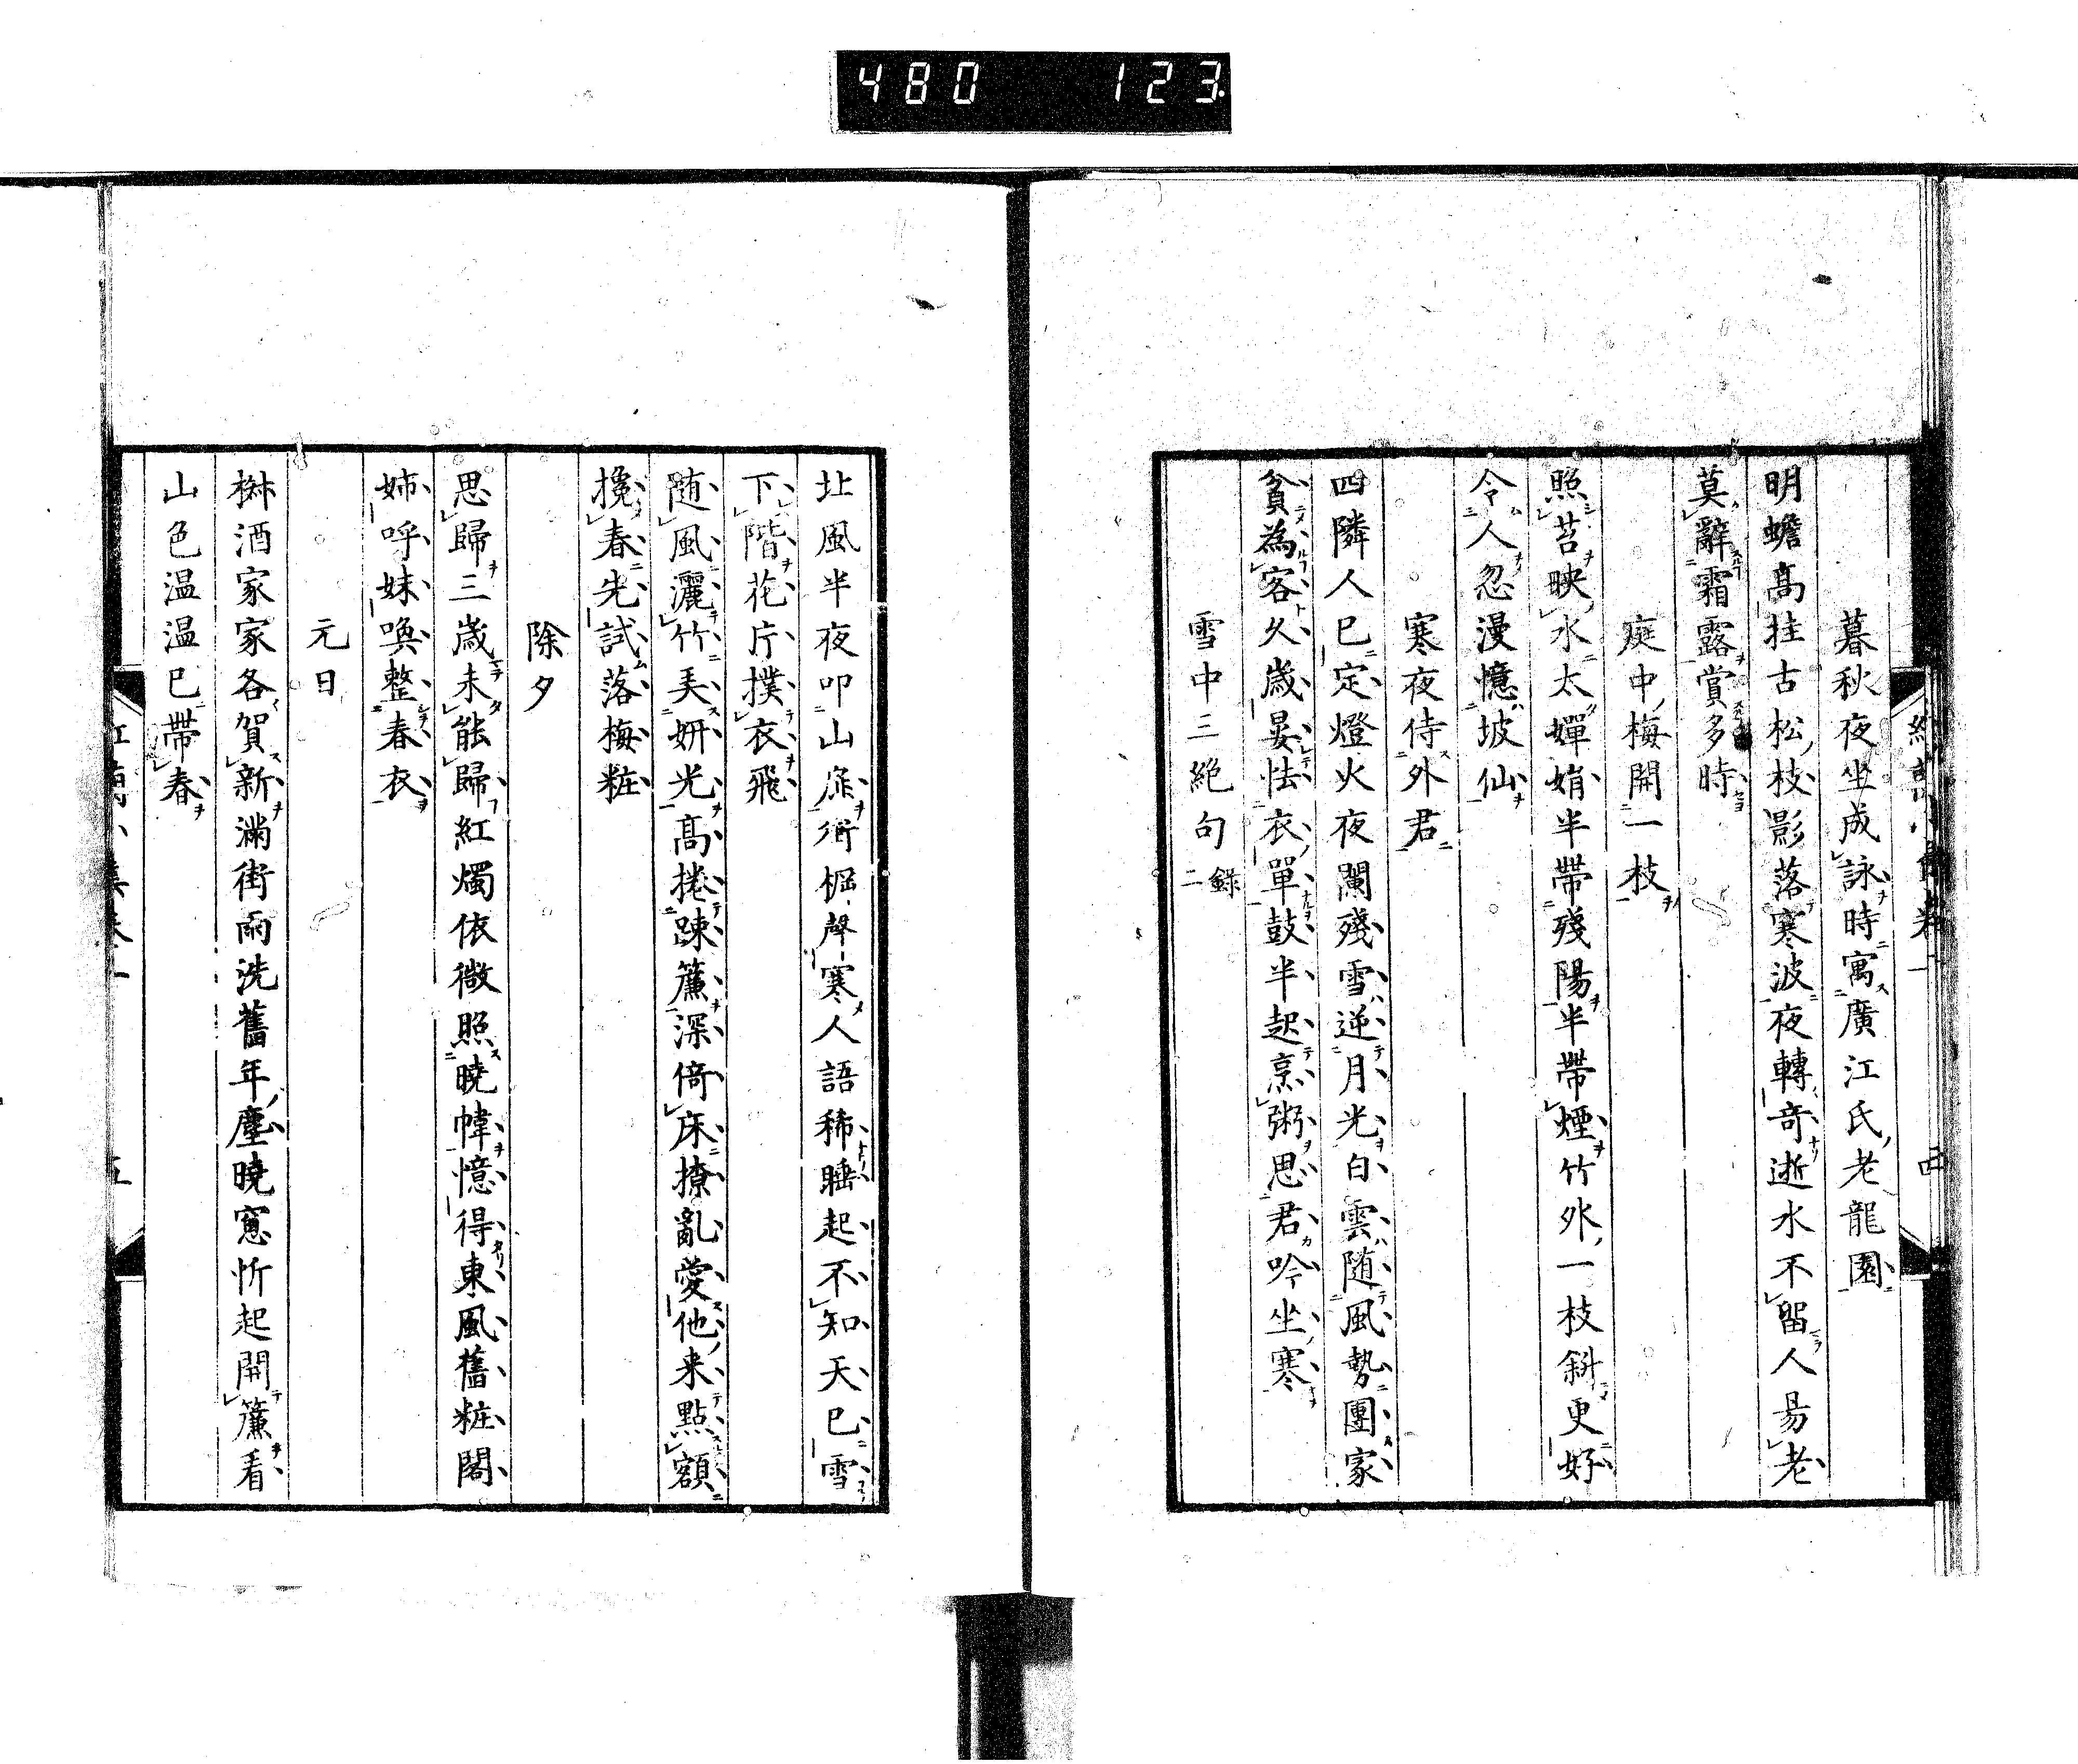 480 123.
暮秋夜坐成詠時寓廣江氏老龍園
明蟾高挂古松枝影落寒波夜轉奇逝水不留人昜老
莫辭霜露賞多時
庭中梅開一枝
照苔映水太嬋娟半帶殘陽半帶煙竹外一枝斜更好
令人忽漫憶坡仙
寒夜侍外君
四隣人已定燈火夜闌殘雪逆月光白雲随風勢團家
貧為客久歳晏怯衣單鼓半起烹粥思君吟坐寒
雪中三絶句 錄二
北風半夜叩山扉街柝聲寒人語稀睡起不知天已雪
下階花片撲衣飛
随風灑竹美妍光高捲踈簾深倚床撩亂愛他来點額
攙春先試落梅粧
除夕
思歸三歳未能歸紅燭依微照曉幃憶得東風舊粧閣
姉呼妹喚整春衣
元日
椒酒家家各賀新滿街雨洗舊年塵曉窓忻起開簾看
山色温温已帶春